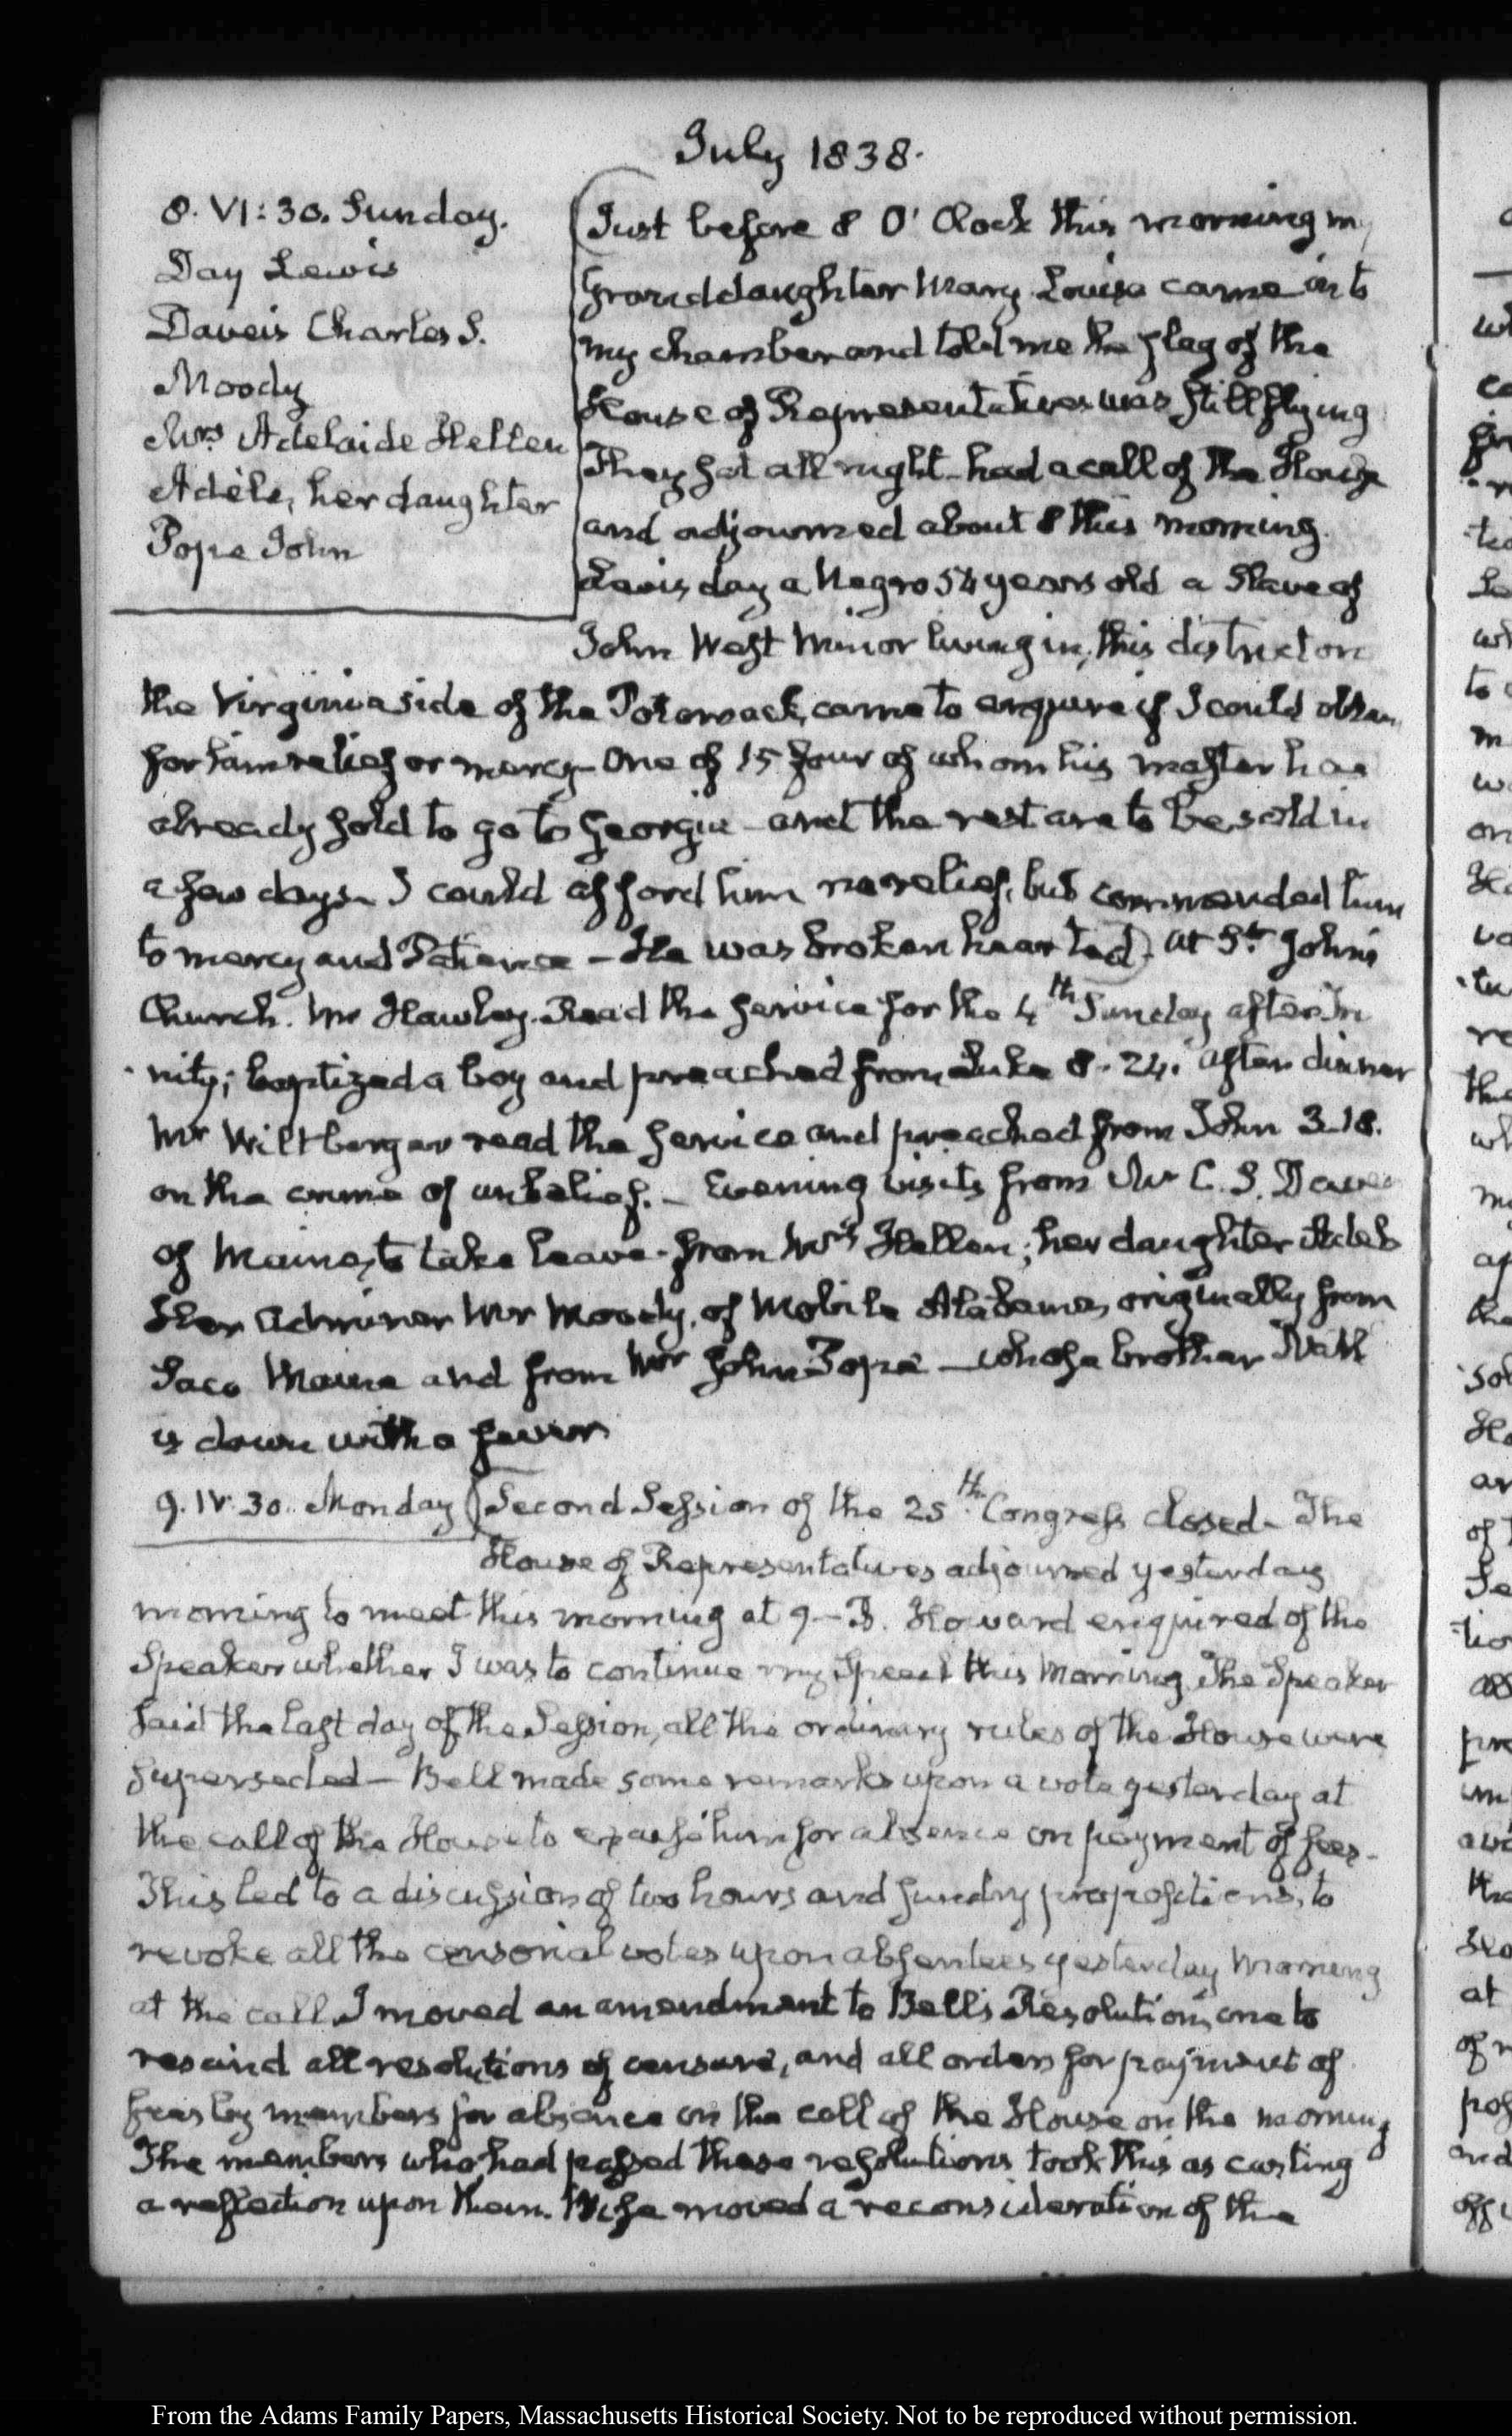 July 1838.
8. VI: 30. Sunday.
Day Lewis
Daveis Charles S.
Moody
Mrs Adelaide Hellen
Adèle, her daughter
Pope John
Just before 8 O' Clock this morning my
Granddaughter Mary Louisa came into
my chamber and told me the flag of the
House of Representatives was still flying
They sat all night – had a call of the House
and adjourned about 8 this morning.
Lewis day a Negro 54 years old a Slave of
John West Minor living in this district on
the Virginia side of the Potowack, came to enquire if I could obtain
for him relief or mercy – One of 15 four of whom his master has
already sold to go to Georgia – and the rest are to be sold in
a few days – I could afford him no relief, but commended him
to mercy and Patience – He was broken hearted. At St. John's
Church. Mr Hawley. Read the service for the 4th Sunday after Tri
nity; baptized a boy and preached from Luke 8. 24. after dinner
Mr Wiltberger read the service and preached from John 3. 18.
on the crime of unbelief. – Evening visits from Mr C. S. Daveis
of Maine, to take leave – from Mrs Hellen; her daughter Adele
Her Admirer Mr Moody, of Mobile Alabama, originally from
Saco Maine and from Mr John Pope – whose brother
is down with a fever
9. IV. 30. Monday
Second Session of the 25th Congress closed – The
House of Representatives adjourned yesterday
morning to meet this morning at 9 – B. Howard enquired of the
Speaker whether I was to continue my Speech this Morning. The Speaker
said the last day of the Session, all the ordinary rules of the House were
superseded – Bell made some remarks upon a vote yesterday at
the call of the House to excuse him for absence on payment of fees –
This led to a discussion of two hours and sundry propositions, to
revoke all the censorial votes upon absentees yesterday morning
at the call. I moved an amendment to Bell's Resolution, one to
rescind all resolutions of censure, and all orders for payment of
fees by members for absence on the call of the House on the morning
The members who had passed these resolutions took this as casting
a reflection upon them. Wise moved a reconsideration of the
From the Adams Family Papers, Massachusetts Historical Society. Not to be reproduced without permission.